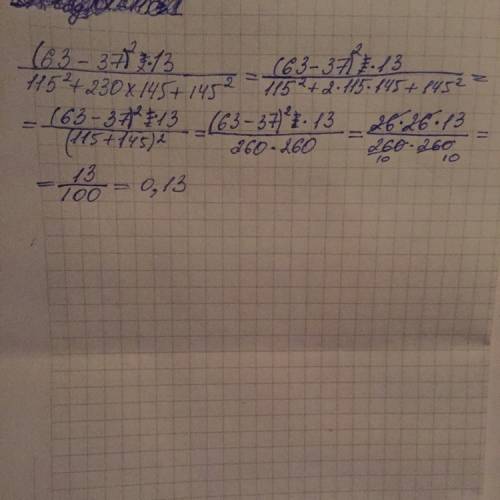 (63-37)²·13 / 115²+230×145+145² = (63-37)²·13 / 115²+2·115·145+145² =
= (63-37)²·13 / (115+145)² = (63-37)²·13 / 260·260 = 26·26·13 / 260·260 =
10 10
= 13/100 = 0,13